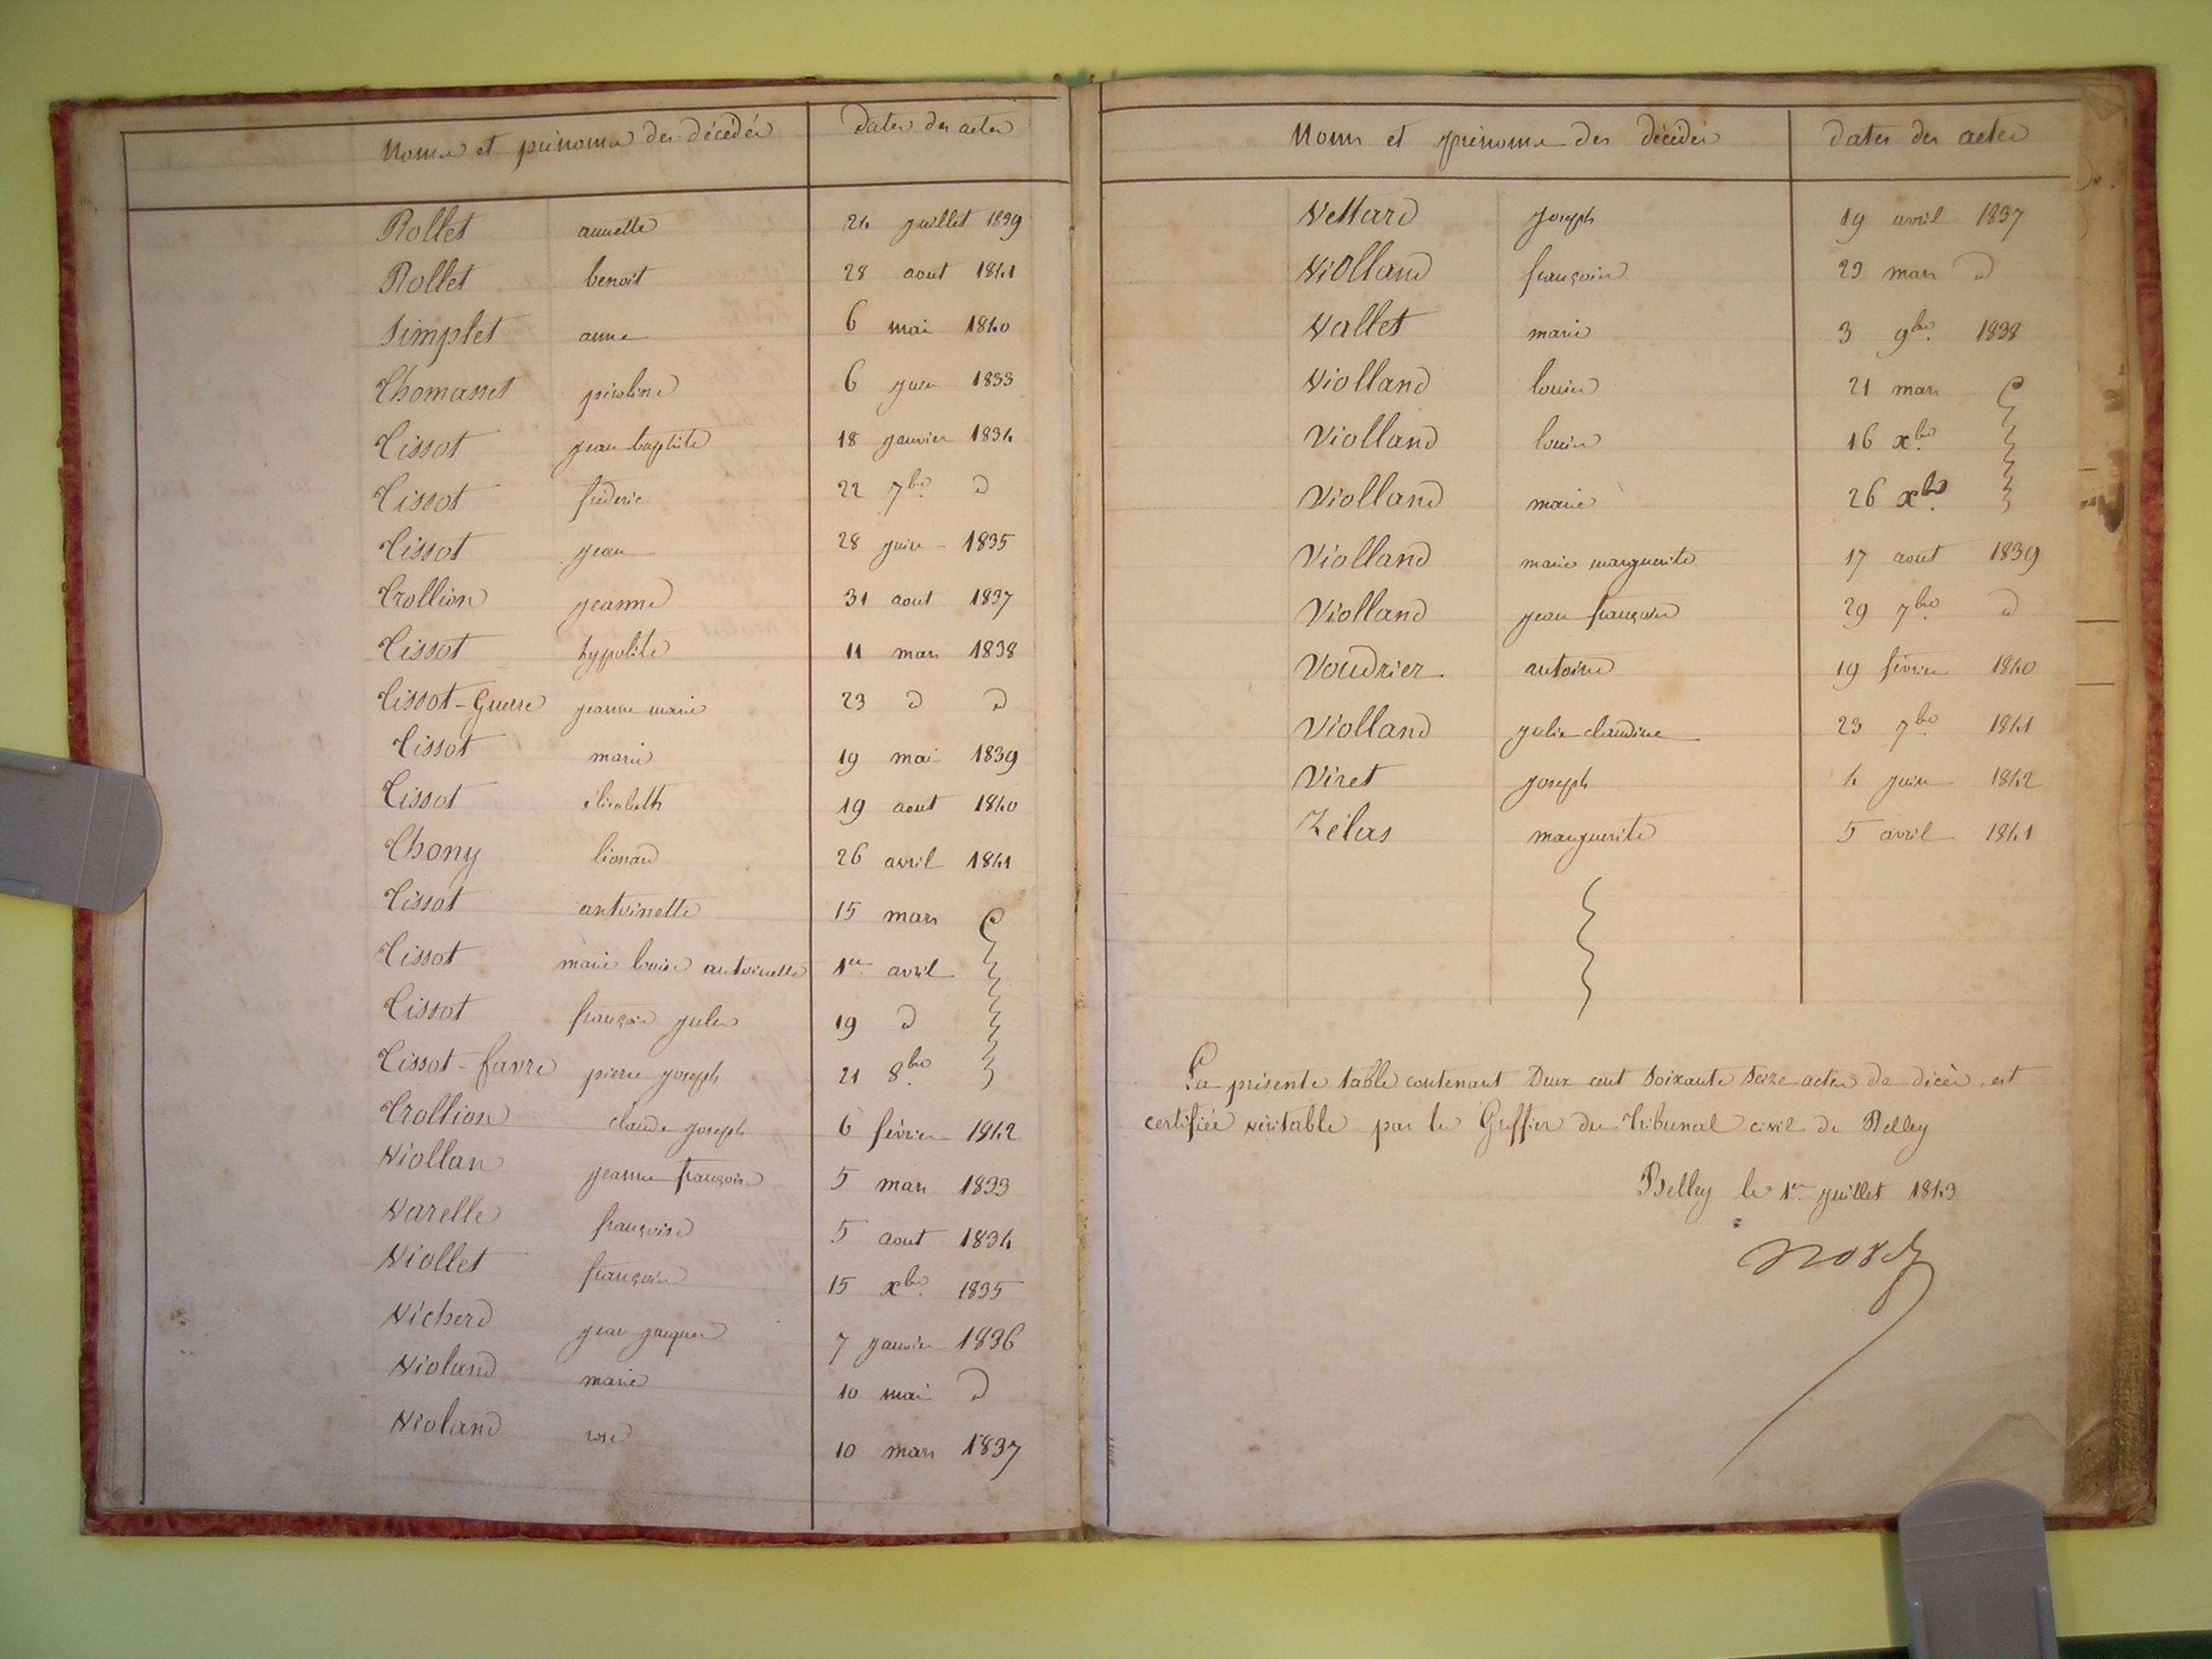 Noms et prénoms des décédés dates des actes
Rollet annette 24 juillet 1839
Rollet benoit 28 aout 1841
Simplet anne 6 mai 1840
Thomasset péroline 6 juin 1833
Tissot jean baptiste 18 janvier 1834
Tissot fréderic 22 7bre d
Tissot jean 28 juin 1835
Trollion jeanne 31 aout 1837
Tissot hypolite 11 mars 1838
Tissot-Guerre jeanne marie 23 d d
Tissot marie 19 mai 1839
Tissot élisabeth 19 aout 1840
Thony léonard 26 avril 1841
Tissot antoinette 15 mars
Tissot marie louise antoinette 1er avril
Tissot françois jules 19 d
Tissot-favre pierre joseph 21 8bre
Trollion claude joseph 6 février 1842
Viollan jeanne françoise 5 mars 1833
Varelle françoise 5 aout 1834
Viollet françois 15 xbre 1835
Vicherd jean jacques 7 janvier 1836
Violand marie 10 mai d
Violand rose 10 mars 1837
Noms et prénoms des décédés dates des actes
Vettard joseph 19 avril 1837
Violland françois 29 mars d
Vallet marie 3 9bre 1838
Violland louis 21 mars
Violland louis 16 xbre
Violland marie 26 xbre
Violland marie marguerite 17 aout 1839
Violland jean françois 29 7bre d
Voudrier antoine 19 février 1840
Violland julie claudine 23 7bre 1841
Viret joseph 4 juin 1842
Zélas marguerite 5 avril 1841
La présente table contenant Deux cent Soixante Seize actes de décès, est
certifiée véritable par le Greffier du Tribunal civil de Belley
Belley le 1er juillet 1843